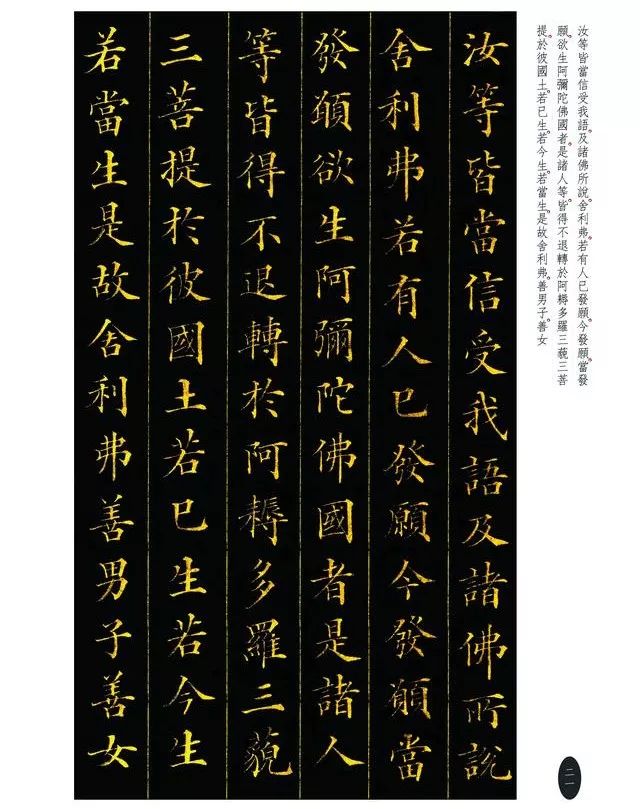 汝等皆當信受我語及諸佛所說
舍利弗若有人已發願今發願當
發願欲生阿彌陀佛國者是諸人
等皆得不退轉於阿耨多羅三藐
三菩提於彼國土若已生若今生
若當生是故舍利弗善男子善女
汝等皆當信受我語。及諸佛所說。舍利弗。若有人已發願。今發願。當發
願。欲生阿彌陀佛國者。是諸人等。皆得不退轉於阿耨多羅三藐三菩
提。於彼國土。若已生。若今生。若當生。是故舍利弗。善男子。善女
二一